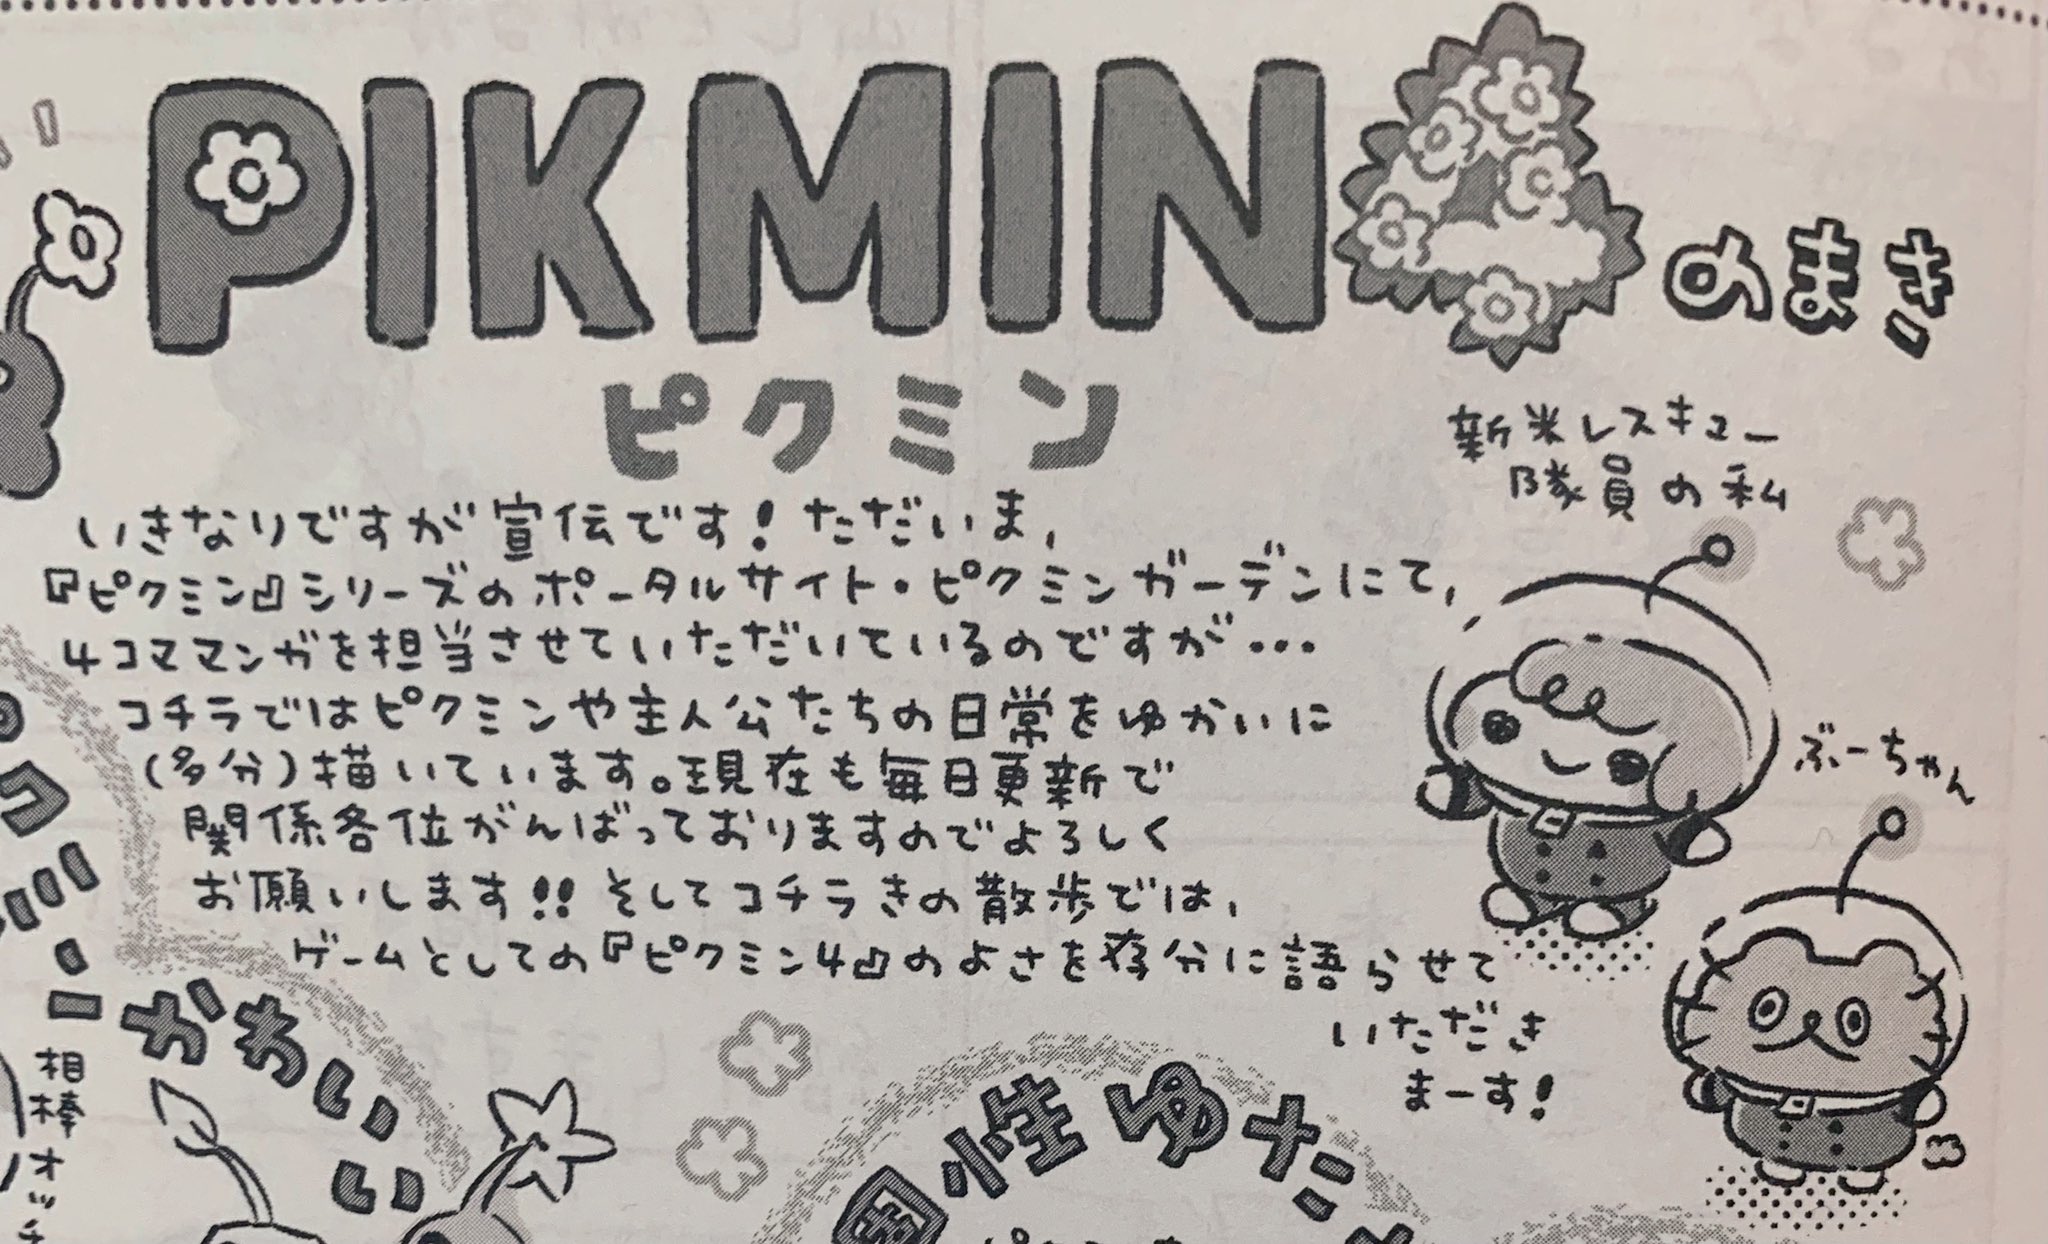 PIKMIN4
のまき
ピクミン
新米レスキュー
隊員の私
いきなりですが宣伝です!ただいま、
『ピクミン』シリーズのポータルサイト・ピクミンガーデンにて、
4コママンガを担当させていただいているのですが…
コチラではピクミンや主人公たちの日常をゆかいに
(多分)描いています。現在も毎日更新で
関係各位がんばっておりますのでよろしく
お願いします!!そしてコチラきの散歩では、
ゲームとしての『ピクミン4』のよさを存分に語らせて
いただき
まーす!
ぶーちゃん
かわいい
相棒オッチ
個性ゆたか